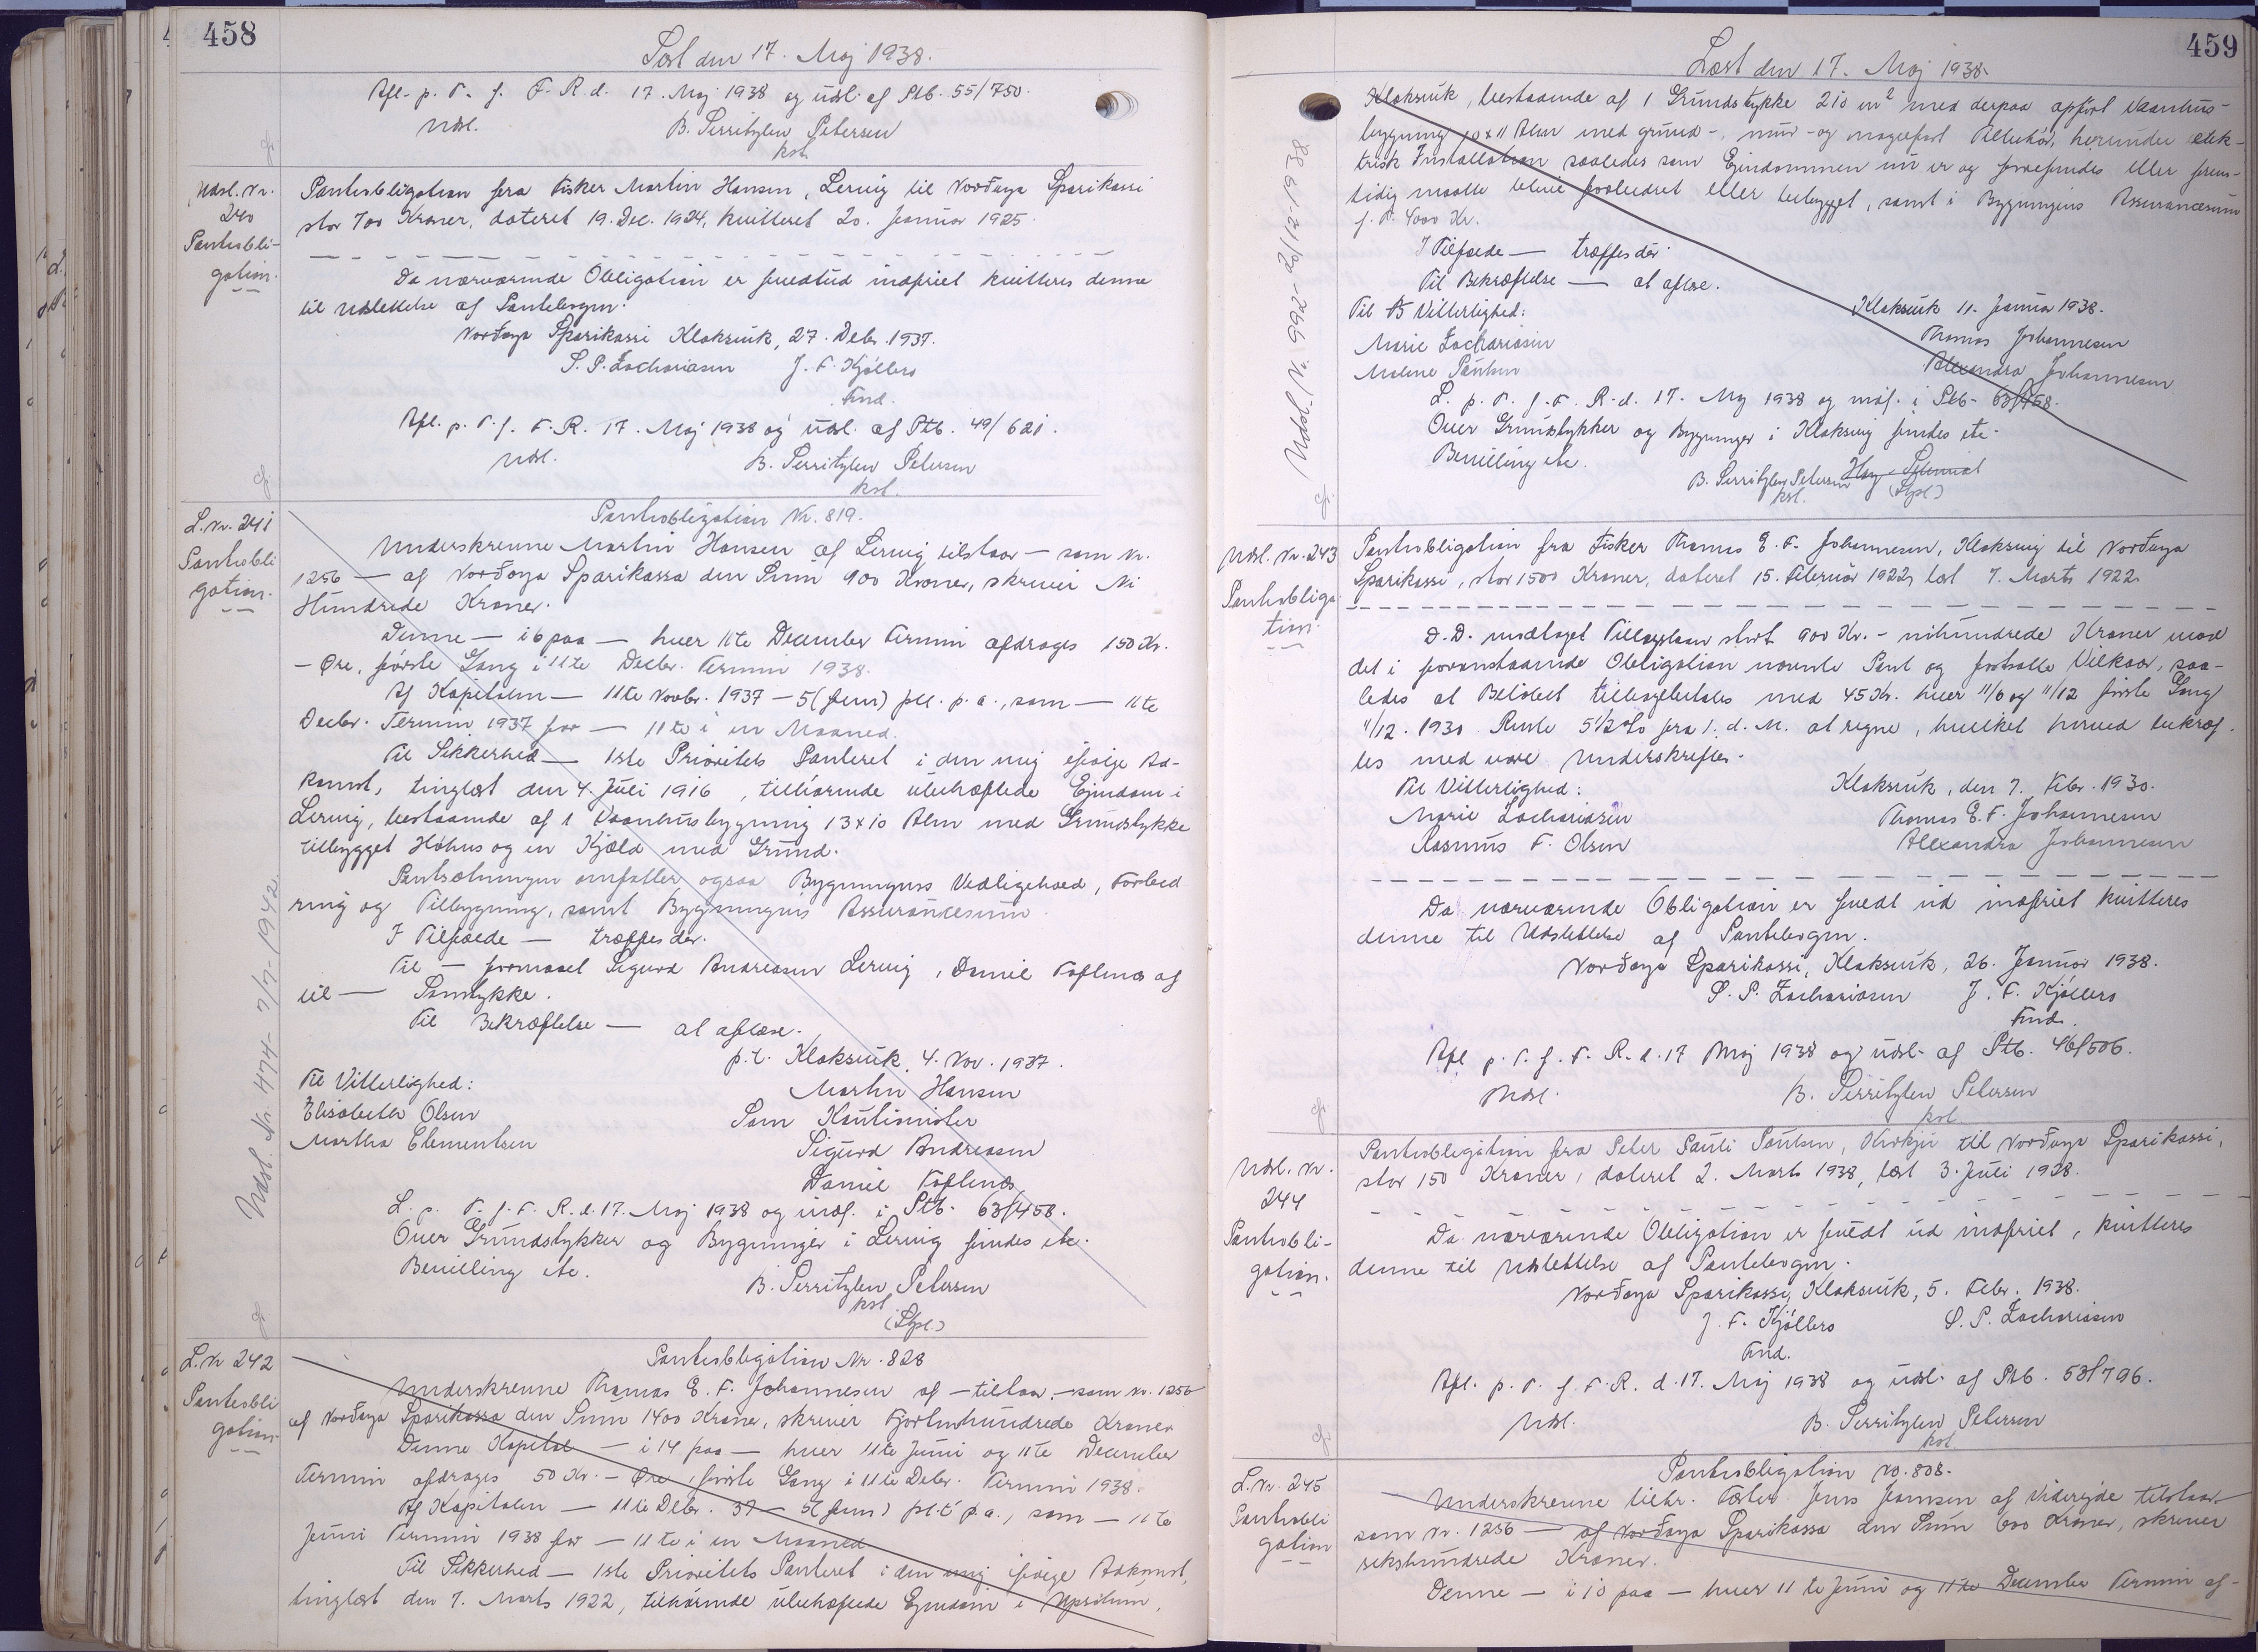 458
Læst den 17. Maj 1938.
Afl. p. T. f. F. R. d. 17. Maj 1938 og udsl. af Ptb. 55/750.
Udsl. B. Djerritzlev Petersen
kst.
Udsl. Nr. 240
Pantobli-
gation.
Pantobligation fra Fisker Martin Hansen, Lervig til Norðoya Sparikassi
stor 700 Kroner, dateret 19. Dec. 1924, kvitteret 20. Januar 1925.
Da nærværende Obligation er fuldtud indfriet kvitteres denne
til Udslettelse af Pantebogen.
Norðoya Sparikassi Klaksvik, 27. Debr. 1937.
S. P. Zachariasen J. F. Kjølbro
Fmd.
Afl. p. T. f. F. R. 17. Maj 1938 og udsl. af Ptb. 49/621.
Udsl. B. Djerritzlev Petersen
kst.
L. Nr. 241
Pantobli
gation.
Pantobligation Nr. 819.
Underskrevne Martin Hansen af Lervig tilstaar — som Nr.
1256 — af Norðoya Sparikassa den Sum 900 Kroner, skriver Ni
Hundrede Kroner.
Denne — i 6 paa — hver 11te December Termin afdrages 150 Kr.
— Øre, første Gang i 11te Decbr. Termin 1938.
Af Kapitalen — 11te Novbr. 1937 — 5 (fem) pct. p. a., som — 11te
Decbr. Termin 1937 for — 11te i en Maaned.
Til Sikkerhed — 1ste Prioritets Panteret i den mig ifølge Ad-
komst, tinglæst den 4. Juli 1916, tilhørende ubehæftede Ejendom i
Lervig, bestaaende af 1 Vaanhusbygning 13 x 10 Alen med Grundstykke
tilbygget Høhus og en Kjæld med Grund.
Pantsætningen omfatter ogsaa Bygningens Vedligehold, Forbed
ring og Tilbygning, samt Bygningens Assurancesum.
I Tilfælde — træffes der.
Til — formaal Sigurd Andreasen Lervig, Daniel Toftenes af
til — Samtykke.
Til Bekræftelse — at aflæse.
p.t. Klaksvik, 4. Nov. 1937.
Til Vitterlighed: Martin Hansen
Elisabeth Olsen Som Kautionister
Martha Clementsen Sigurd Andreasen
Daniel Toftenes
L. p. T. f. F. R. d. 17. Maj 1938 og indf. i Ptb. 63/458.
Over Grundstykker og Bygninger i Lervig findes etc.
Bevilling etc. B. Djerritzlev Petersen
kst.
(Stpl.)
Udsl. Nr. 474 - 7/7 - 1942.
L. Nr 242
Pantobli
gation
Pantobligation Nr. 828
Underskrevne Thomas E. F. Johannesen af — tilstaar — som Nr. 1256
af Norðoya Sparikassa den Sum 1400 Kroner, skriver Fjortenhundrede Kroner
Denne Kapital — i 14 paa — hver 11te Juni og 11te December
Termin afdrages 50 Kr. — Øre, første Gang i 11te Debr. Termin 1938.
Af Kapitalen — 11te Debr. 37 — 5 (fem) pct. p.a., som — 11te
Juni Termin 1938 for — 11te i en Maaned
Til Sikkerhed — 1ste Prioritets Panteret i den mig ifølge Adkomst,
tinglæst den 7. Marts 1922, tilhørende ubehæftede Ejendom i
459
Læst den 17. Maj 1938.
Klaksvik, bestaaende af 1 Grundstykke 210 m² med derpaa opført Vaanhus-
bygning 10 x 11 Alen med grund-, mur- og nagelfast Tilbehør, herunder elek-
trisk Installation saaledes som Ejendommen nu er og forefindes eller frem-
tidig maatte blive forbedret eller bebygget, samt i Bygningens Assurancesum
f. T. 4000 Kr.
I Tilfælde — træffes der.
Til Bekræftelse — at aflæse.
Klaksvik 11. Januar 1938.
Til Vitterlighed: Thomas Johannesen
Marie Zachariasen Alexandra Johannesen
Malene Poulsen
L. p. T. f. F. R. d. 17. Maj 1938 og indf. i Ptb. 63/458.
Over Grundstykker og Bygninger i Klaksvig findes etc.
Bevilling etc.
B. Djerritzlev Petersen
kst. (Stpl.)
Udsl. Nr. 992 - 20/12 1938
Udsl. Nr. 243
Pantobliga-
tion.
Pantobligation fra Fisker Thomas E. F. Johannesen, Klaksvig til Norðoya
Sparikassi, stor 1500 Kroner, dateret 15. Februar 1922, læst 7. Marts 1922.
D. D. modtaget Tillægslaan stort 900 Kr. — nihundrede Kroner mod
det i foranstaaende Obligation nævnte Pant og fastsatte Vilkaar, saa-
ledes at Beløbet tilbagebetales med 45 Kr. hver 11/6 og 11/12 første Gang
11/12. 1930. Rente 5½ % fra 1. d. M. at regne, hvilket herved bekræf-
tes med vore Underskrifter.
Til Vitterlighed: Klaksvik, den 7. Febr. 1930.
Marie Zachariasen Thomas E. F. Johannesen
Rasmus F. Olsen Alexandra Johannesen
Da nærværende Obligation er fuldt ud indfriet kvitteres
denne til Udslettelse af Pantebogen.
Norðoya Sparikassi, Klaksvik, 26. Januar 1938.
S. P. Zachariasen J. F. Kjølbro
Fmd.
Afl p. T. f. F. R. d. 17 Maj 1938 og udsl. af Ptb. 46/506.
Udsl. B. Djerritzlev Petersen
kst.
Udsl. Nr.
244
Pantobli-
gation.
Pantobligation fra Peter Pauli Poulsen, til Norðoya Sparikassi,
stor 150 Kroner, dateret 2. Marts 1938, læst 3. Juli 1928.
Da nærværende Obligation er fuldt ud indfriet, kvitteres
denne til Udslettelse af Pantebogen.
Norðoya Sparikassi, Klaksvik, 5. Febr. 1938.
J. F. Kjølbro S. P. Zachariasen
Fmd.
Afl. p. T. f. F. R. d. 17. Maj 1938 og udsl. af Ptb. 53/796.
Udsl. B. Djerritzlev Petersen
kst
L. Nr. 245
Pantobli
gation
Pantobligation No. 808.
Underskrevne Jens Joensen af Viderejde tilstaar
som Nr. 1256 — af Norðoya Sparikassa den Sum 600 Kroner, skriver
sekshundrede Kroner.
Denne — i 10 paa — hver 11te Juni og 11te December Termin af-